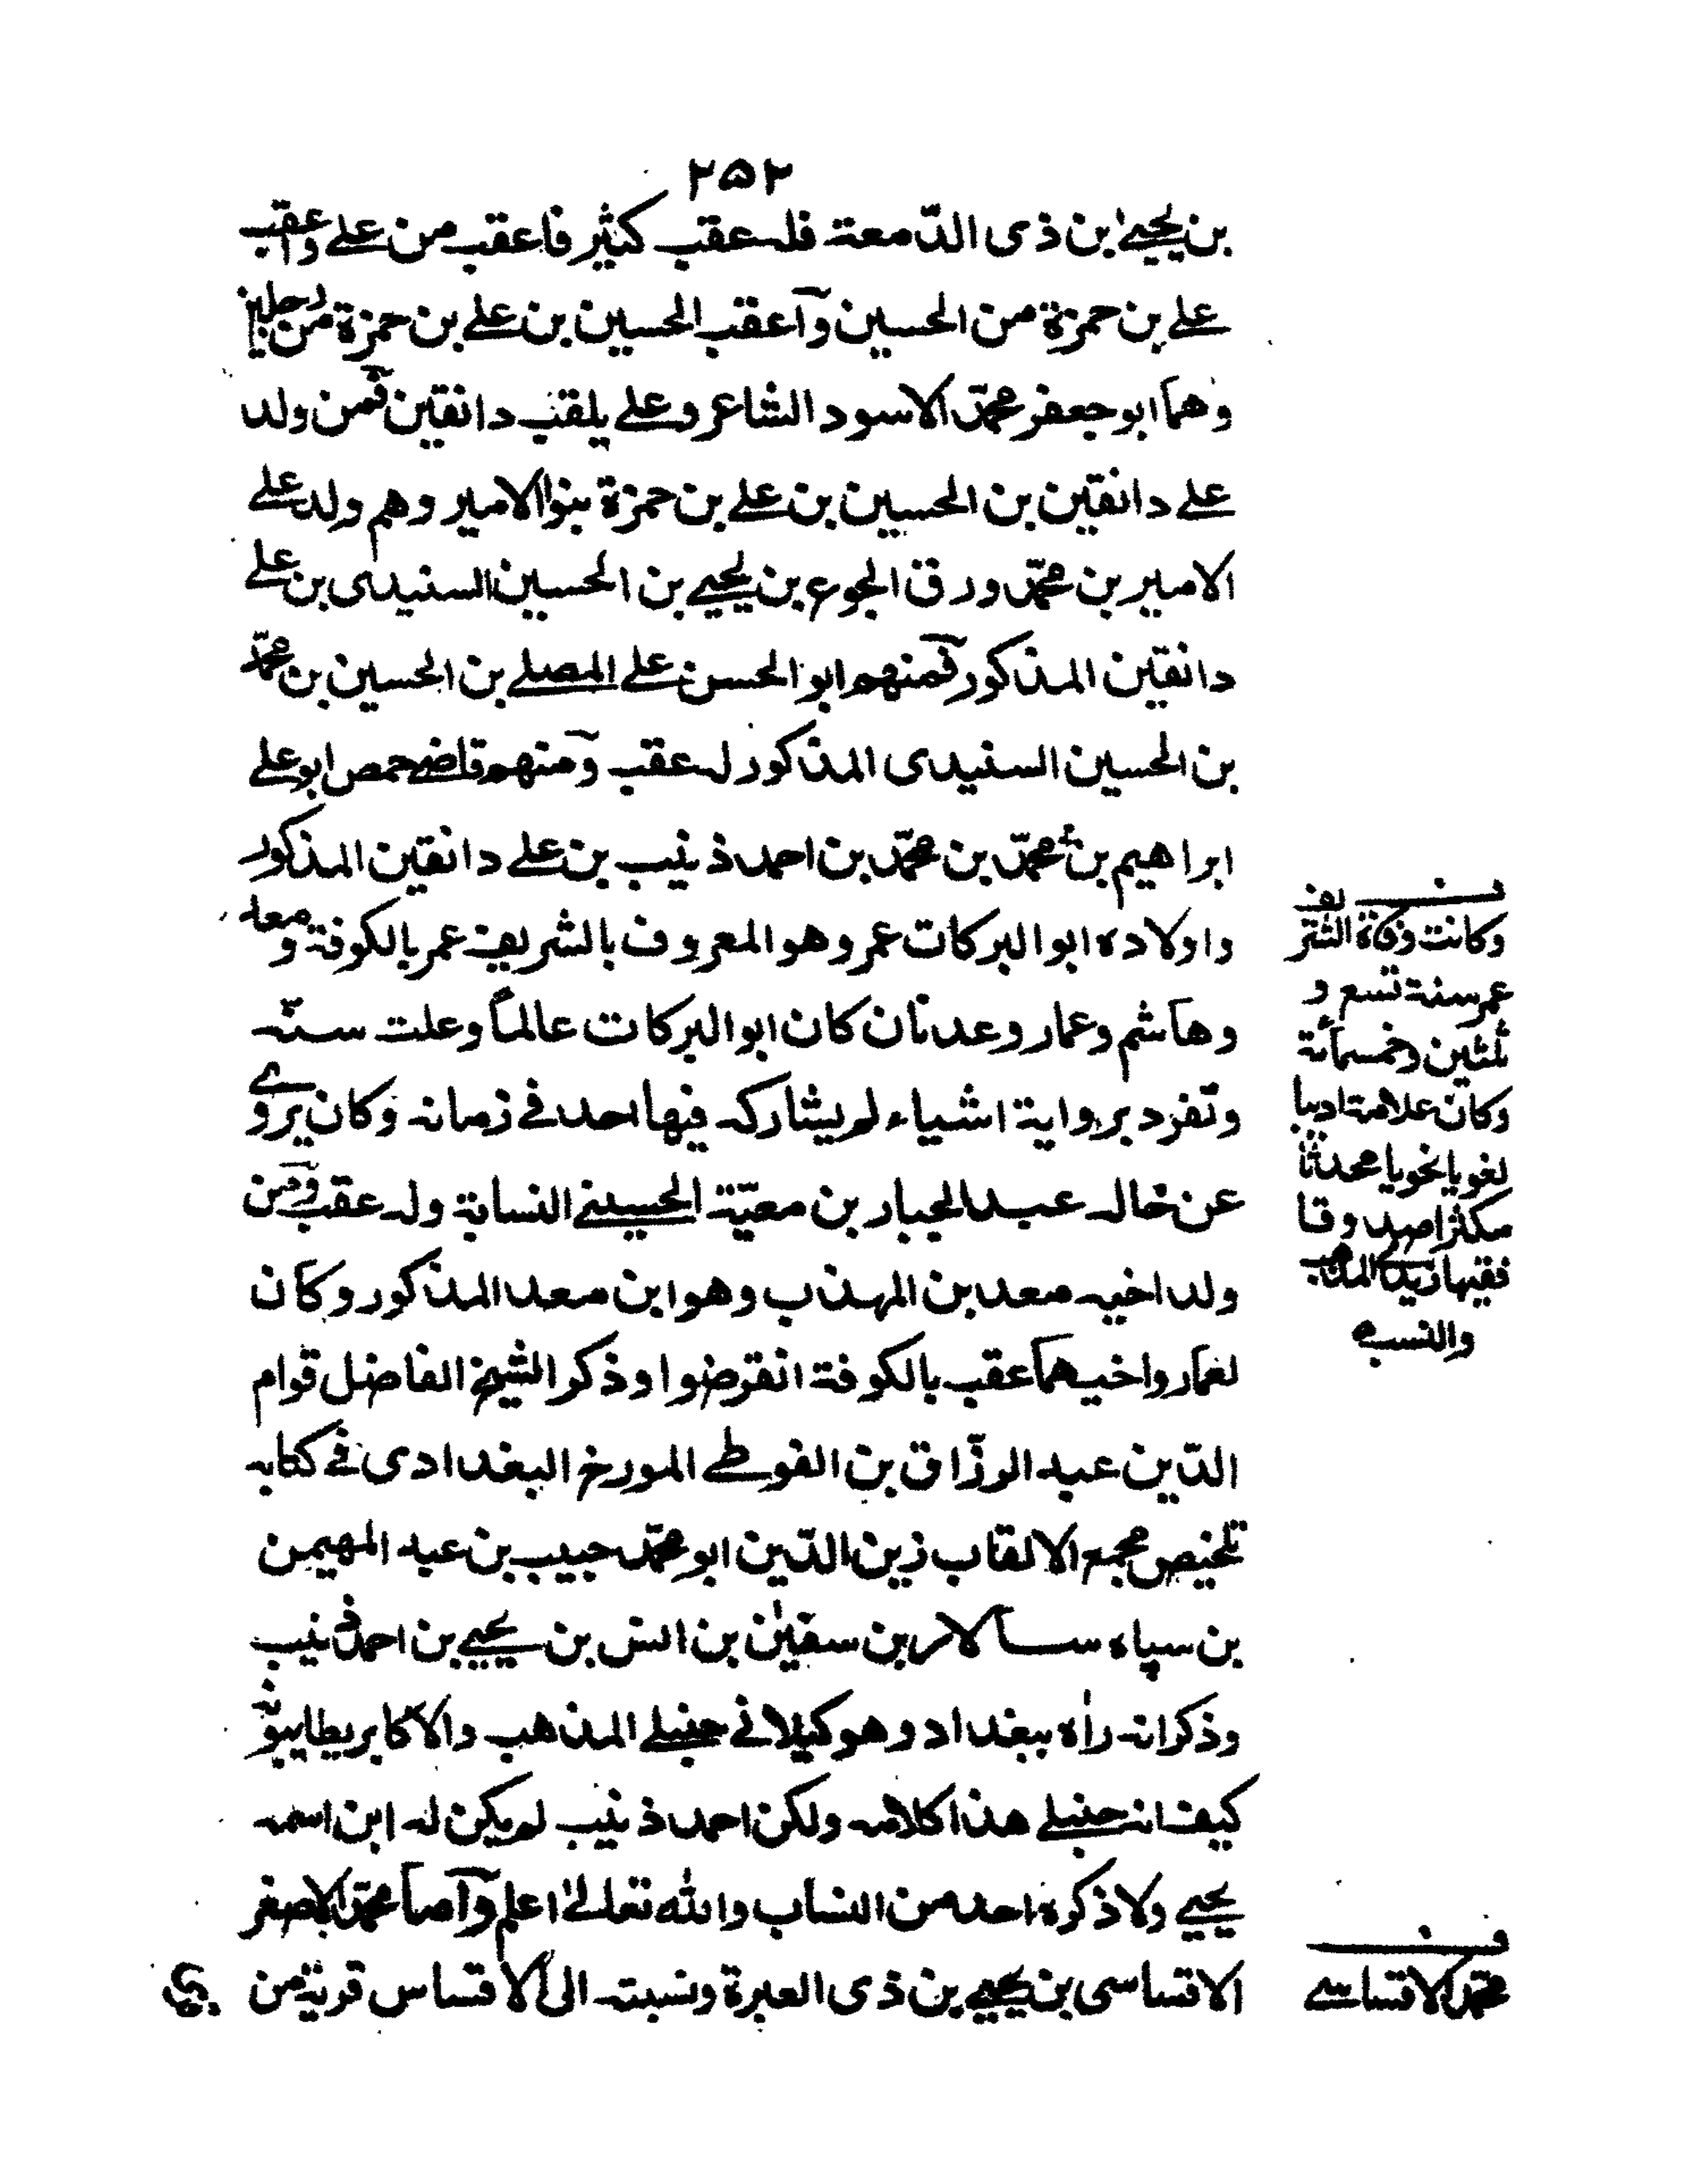 ٢٥٢
بن يحيى بن ذى الدّمعة فله عقب كثير فاعقب من على واعقب
على بن حمزة من الحسين وآعقب الحسين بن على بن حمزة من رجلين
وهما ابو جعفر محمّد الاسود الشاعر وعلى يلقب دانقين فمن ولد
على دانقين بن الحسين بن على بن حمزة بنو الامير وهم ولد على
الامير بن محمّد ورق الجوع بن يحيى بن الحسين السنيدى بن على
دانقين المذكور فمنهم ابو الحسن على المصلى بن الحسين بن محمّد
بن الحسين السنيدى المذكور له عقب وآمنهم قاضى حمص ابو على
ابراهيم بن محمّد بن محمّد بن احمد ذنيب بن على دانقين المذكور
واولاده ابو البركات عمر وهو المعروف بالشريف عمر بالكوفة ومعد
وهاشم وعمار وعدنان كان ابو البركات عالماً وعلت سنّه
وتفرد برواية اشياء لم يشاركه فيها احد فى زمانه وكان يروى
عن خاله عبد الجبار بن معيّة الحسينى النسابة وله عقب ومن
ولد اخيه معد بن المهذب وهو ابن معد المذكور وكان
لعمار واخيه هما عقب بالكوفة انقرضوا وذكر الشيخ الفاضل قوام
الدّين عبد الرزّاق بن الفوطى المورخ البغدادى فى كتابه
تلخيص مجمع الالقاب زين الدّين ابو محمّد حبيب بن عبد المهيمن
بن سپاه سالار بن سفيٰن بن انس بن يحيى بن احمد ذنيب
وذكر انه رأه ببغداد وهو كيلانى حنبلى المذهب والاكابر يطايبونه
كيف انه حنبلى هذا كلامه ولكن احمد ذنيب لم يكن له ابن اسمه
يحيى ولا ذكره احد من النساب والله تعالى اعلم وآما محمّد الاصغر
الاقساسى بن يحيى بن ذى العبرة ونسبته الى الاقساس قرية من
وكانت وفاة الشريف
عمر سنة تسع و
ثلثين وخمسمائة
وكان علامة اديبا
لغويا نحويا محدثا
مكثرا صدوقا
فقيها زيدى المذهب
والنسب
محمّد الاقساسى